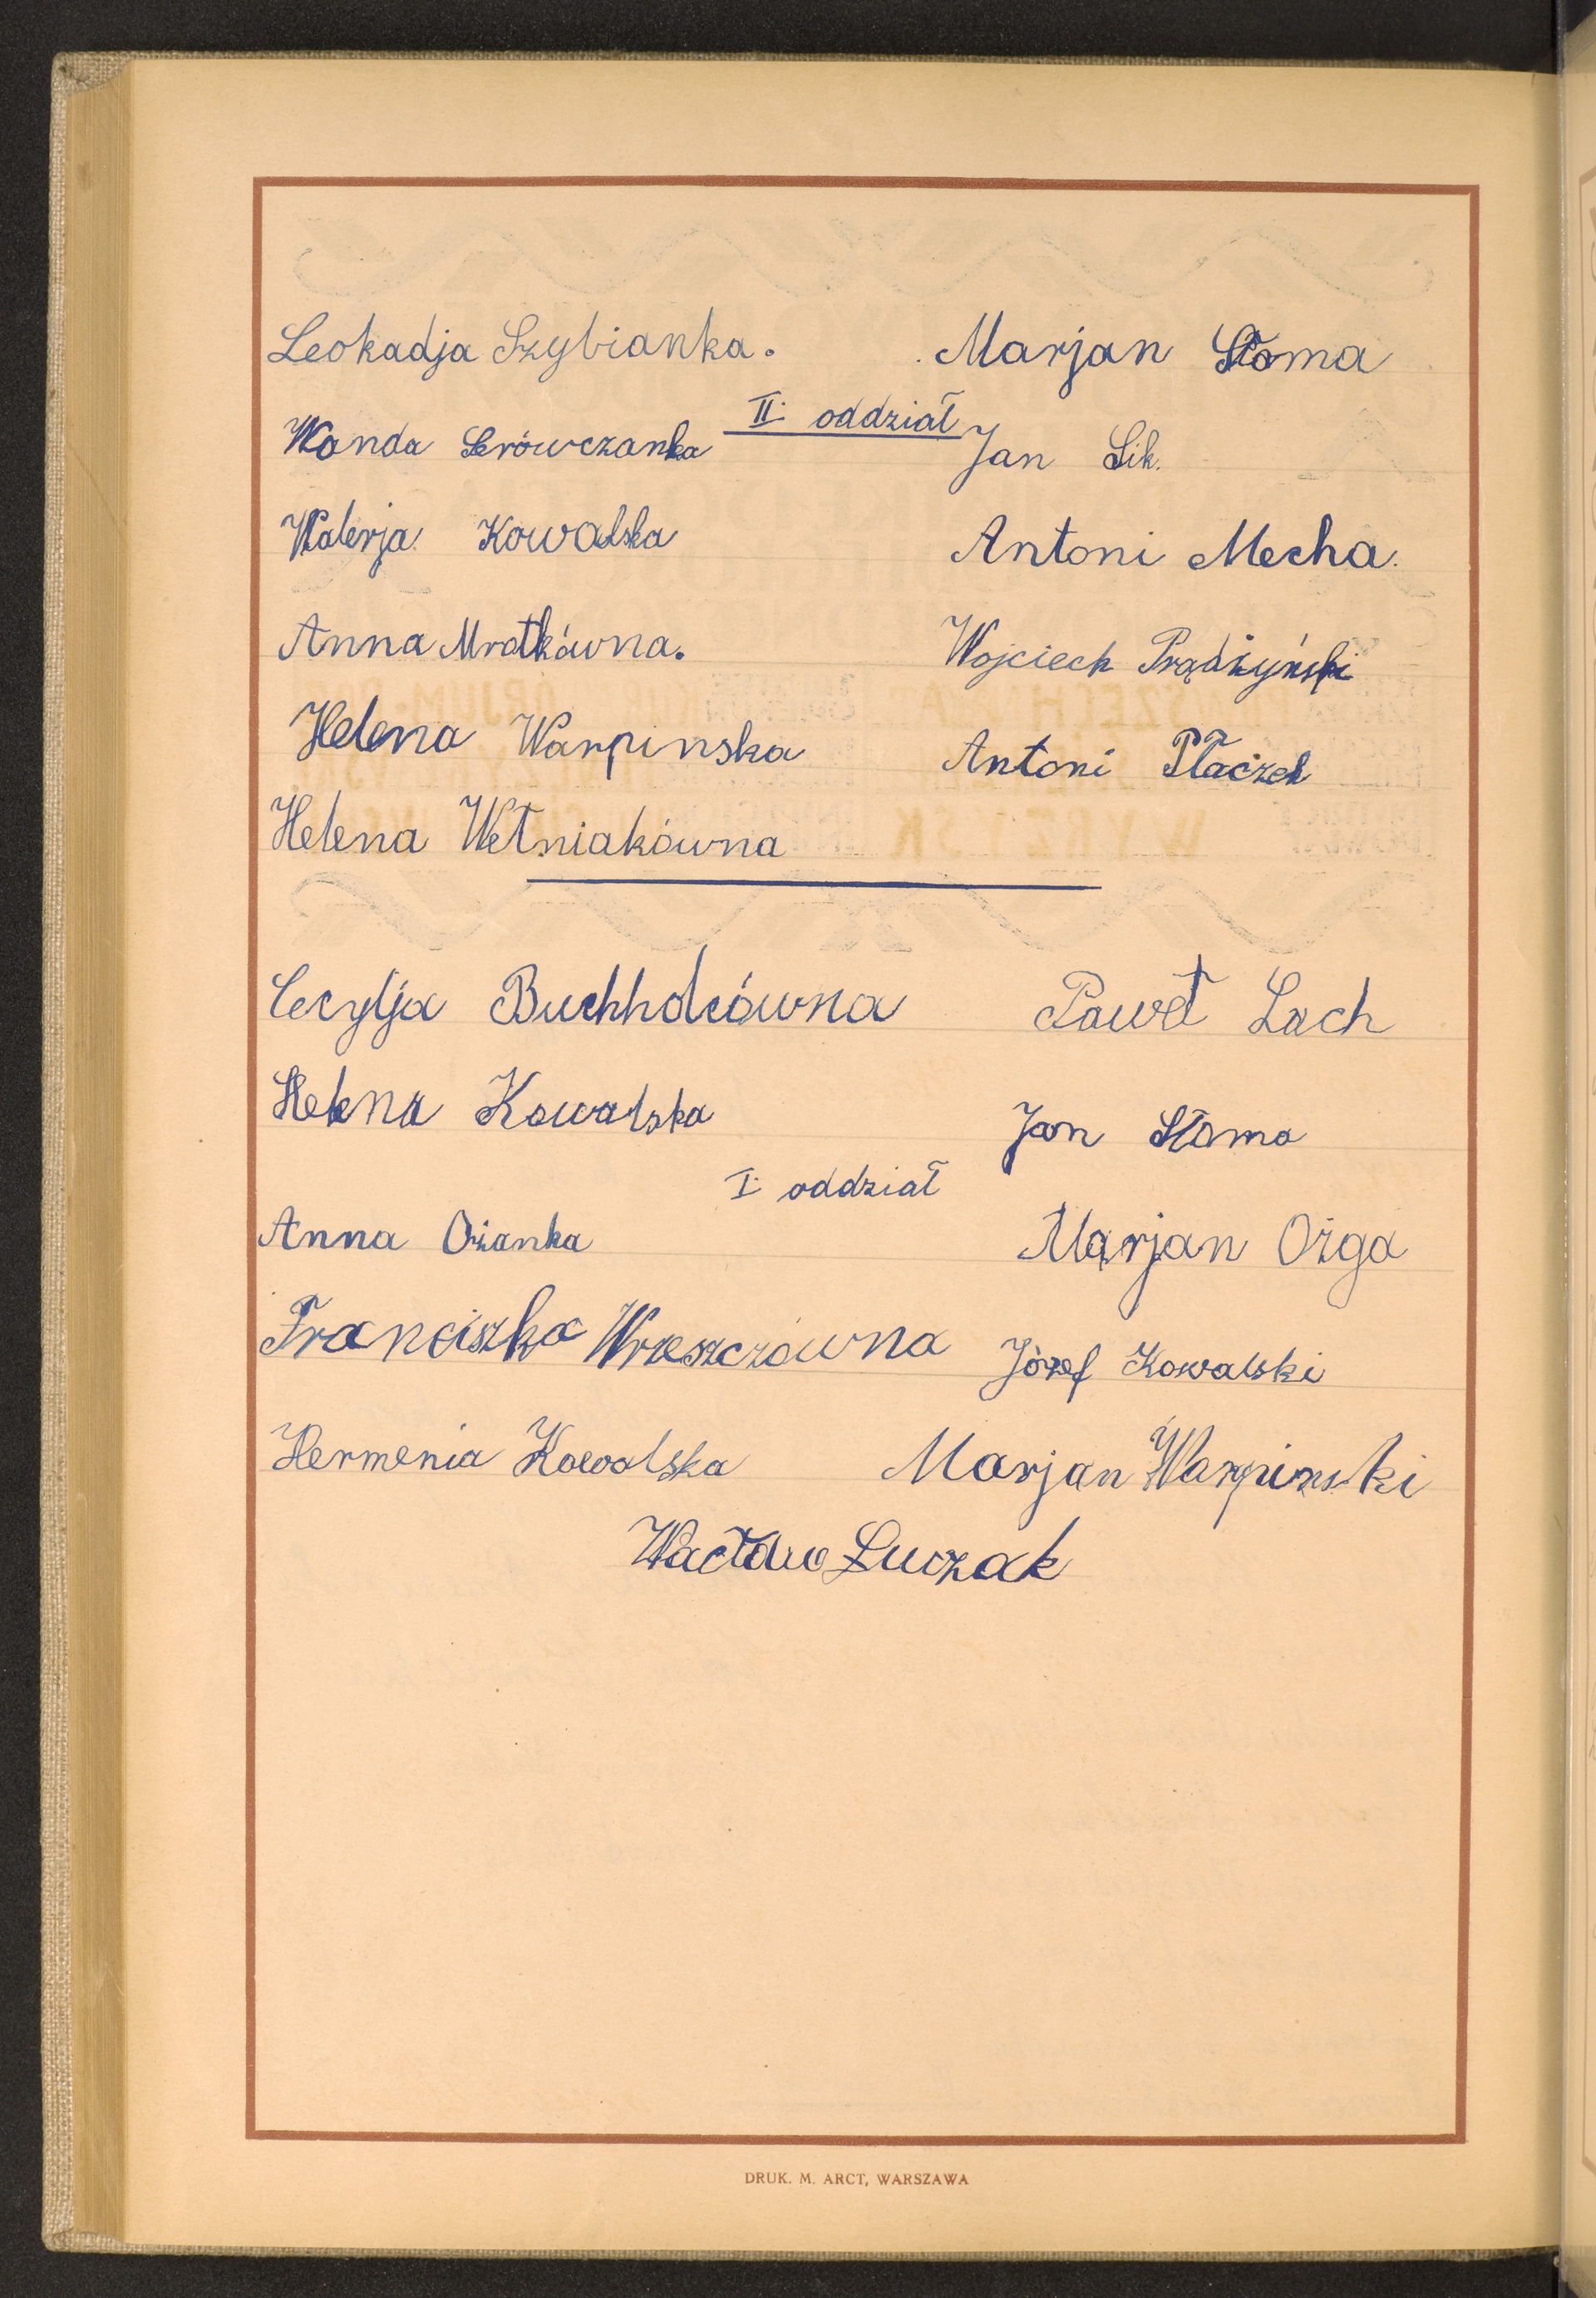 Leokadja Szybianka. Marjan Słoma
II. oddział
Wanda Serówczanka Jan Sik.
Walerja Kowalska Antoni Mecha.
Anna Mrotkówna. Wojciech Prądżyński
Helena Warpinska Antoni Płaczek
Helena Wełniakówna
Cecylja Buchholcówna Paweł Lach
Helena Kowalska Jan Słoma
I. oddział
Anna Ożanka Marjan Ożga
Franciszka Wrzeszczówna Józef Kowalski
Hermenia Kowalska Marjan Warpinski
Wacław Luczak
DRUK. M. ARCT, WARSZAWA